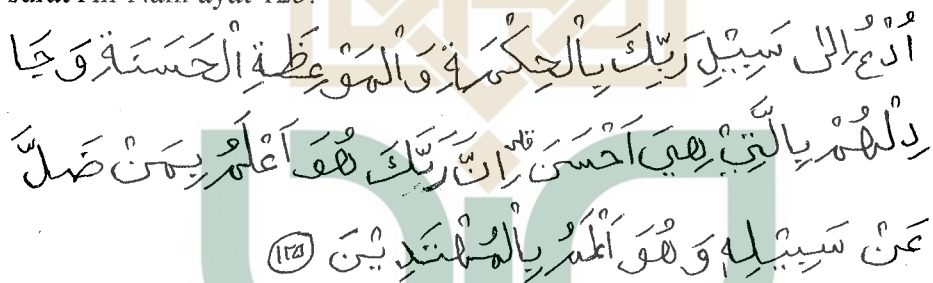 surat An-Nahl ayat 125:
اُدْعُ اِلٰى سَبِيْلِ رَبِّكَ بِالْحِكْمَةِ وَالْمَوْعِظَةِ الْحَسَنَةِ وَجَا
دِلْهُمْ بِالَّتِيْ هِيَ اَحْسَنَ قلى اِنَّ رَبَّكَ هُوَ اَعْلَمُ بِمَنْ ضَلَّ
عَنْ سَبِيْلِهٖ وَهُوَ اَعْلَمُ بِالْمُهْتَدِيْنَ ١٢٥